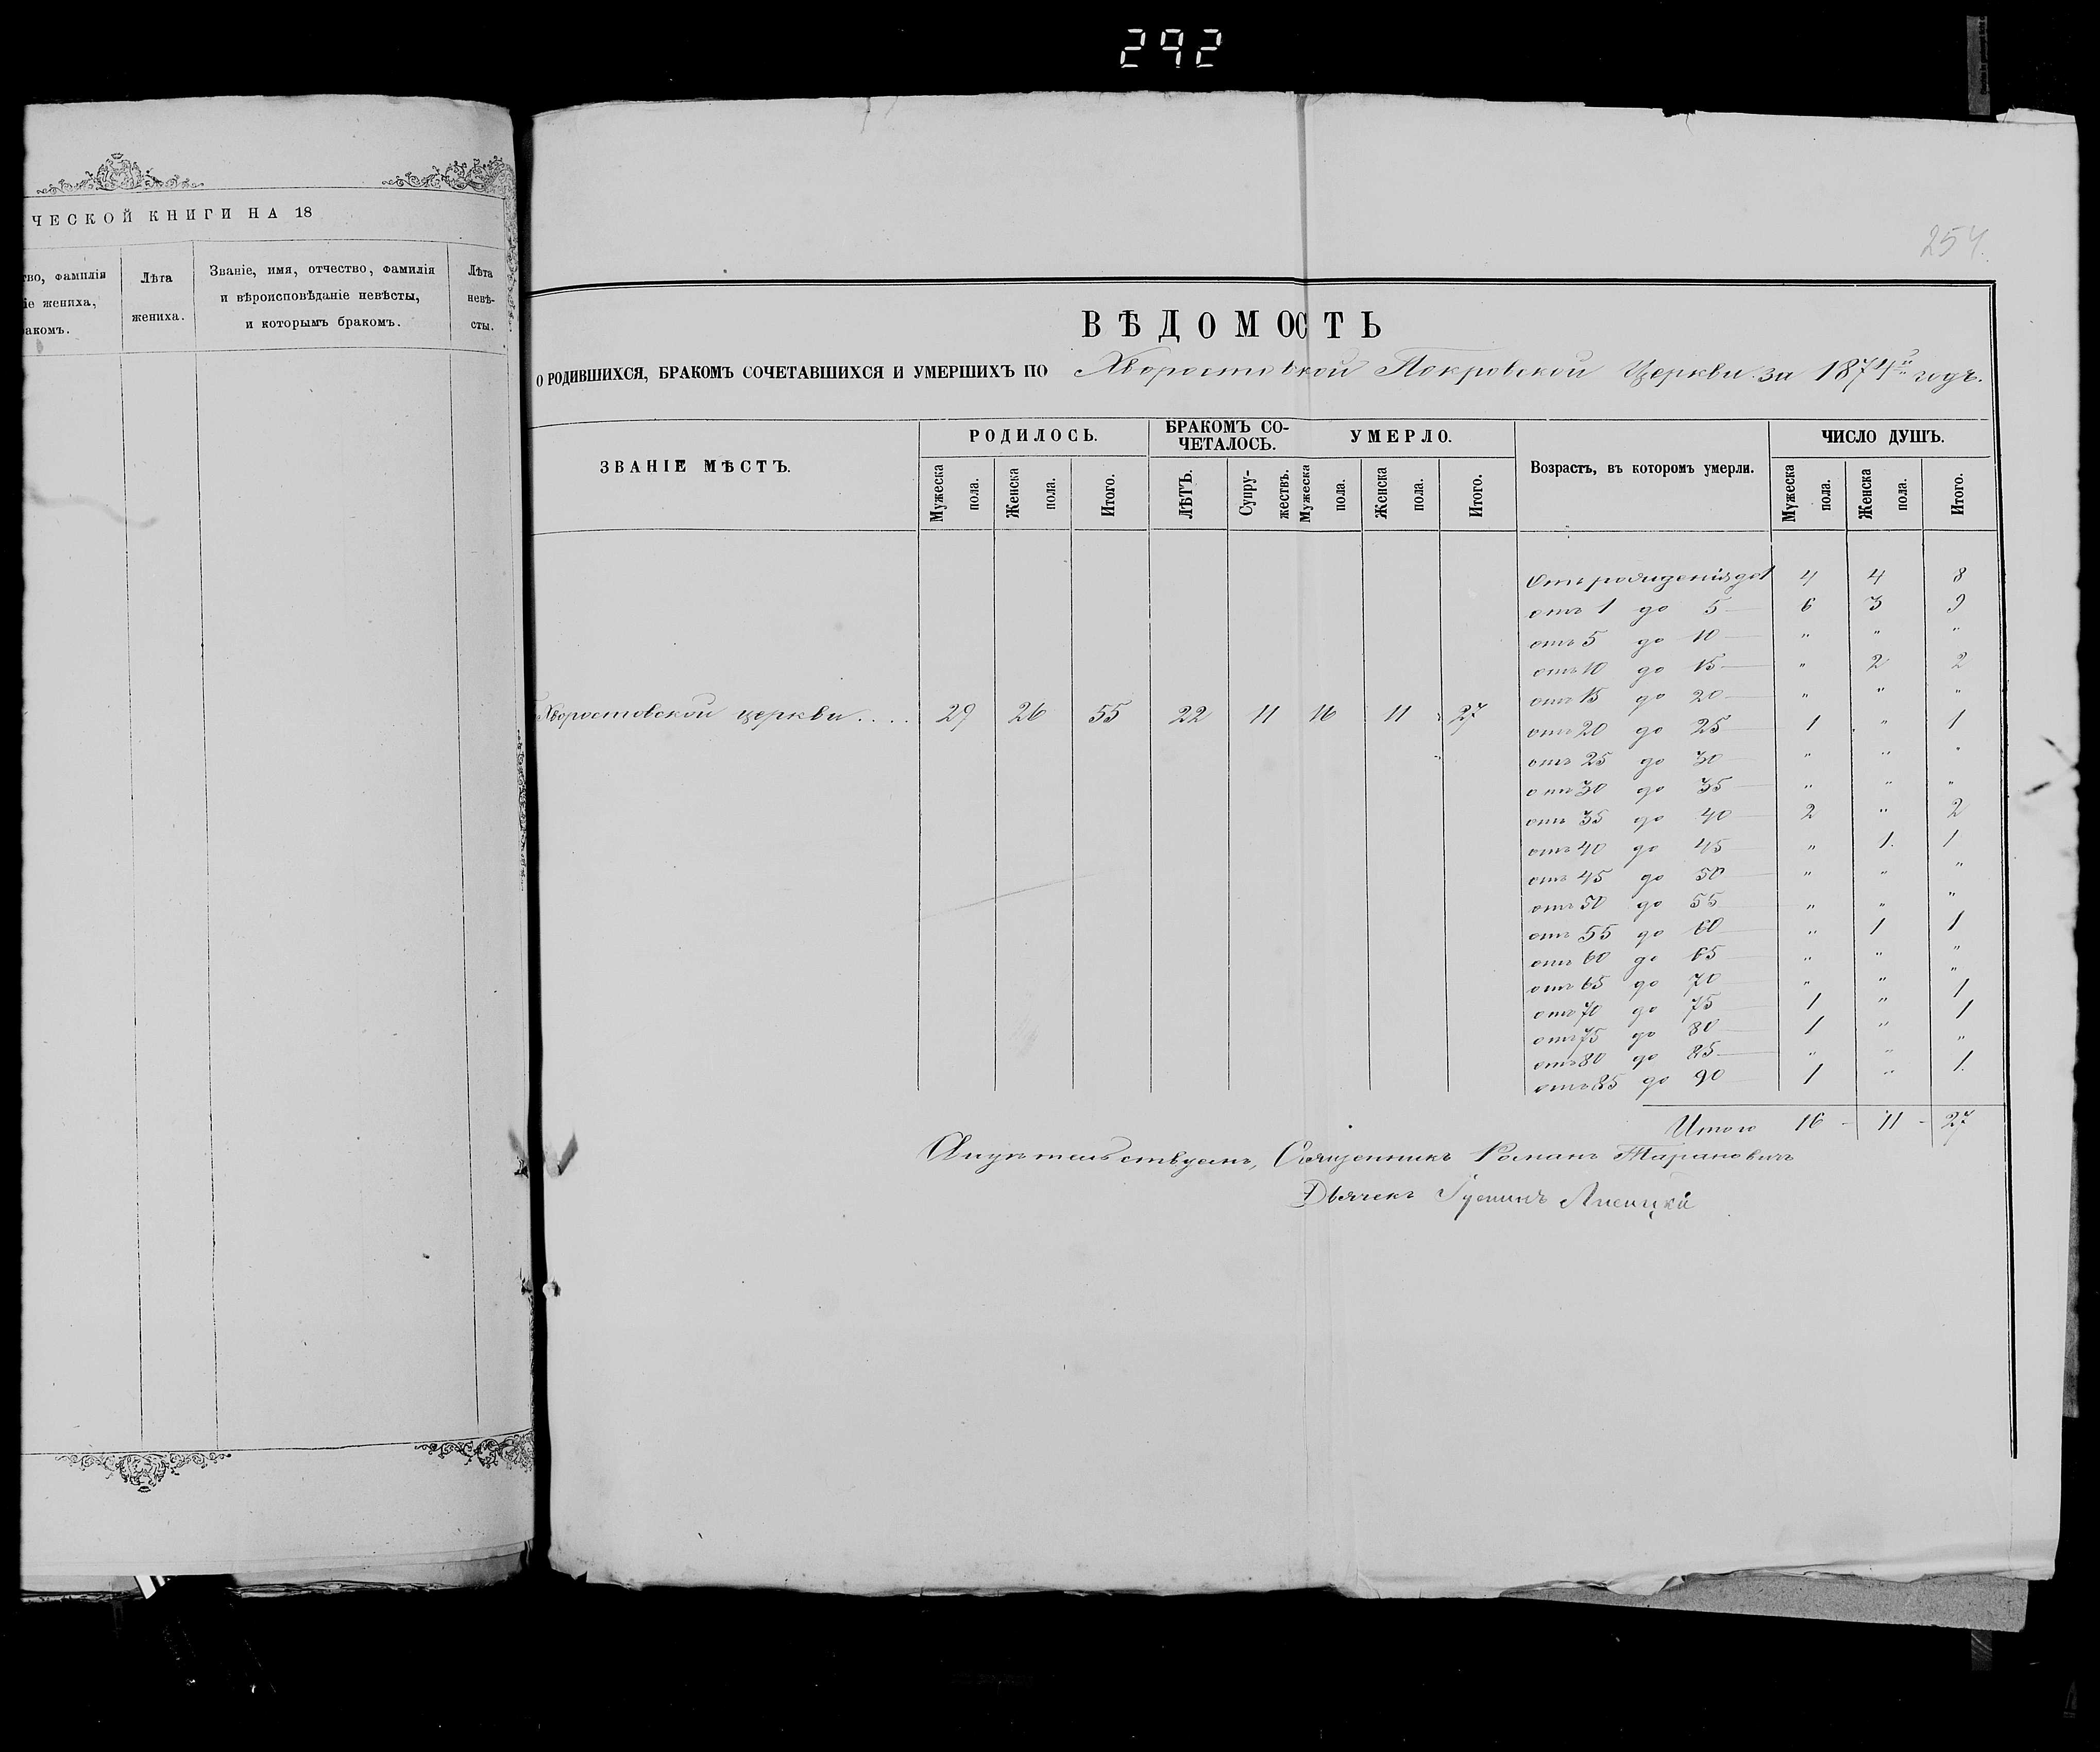 292
ЧЕСКОЙ КНИГИ НА 18
тво, фамилія
іе жениха,
акомъ.
Лѣта
жениха.
Званіе, имя, отчество, фамилія
и вѣроисповѣданіе невѣсты,
и которымъ бракомъ.
Лѣта
невѣ-
сты.
254.
ВѢДОМОСТЬ
О РОДИВШИХСЯ, БРАКОМЪ СОЧЕТАВШИХСЯ И УМЕРШИХЪ ПО Хворостовской Покровской Церкви за 1874й годъ.
ЗВАНІЕ МѢСТЪ.
РОДИЛОСЬ.
Мужеска пола.
Женска пола.
Итого.
БРАКОМЪ СО-
ЧЕТАЛОСЬ.
ЛѢТЪ.
Супру-
жествъ.
УМЕРЛО.
Мужеска пола.
Женска пола.
Итого.
Возрастъ, въ которомъ умерли.
ЧИСЛО ДУШЪ.
Мужеска пола.
Женска пола.
Итого.
Хворостовской церкви . . . . 29 26 55 22 11 16 11 27
Отъ рожденія до 1 4 4 8
отъ 1 до 5 — 6 3 9
отъ 5 до 10 — " " "
отъ 10 до 15 — " 2 2
отъ 15 до 20 — " " "
отъ 20 до 25 — 1 " 1
отъ 25 до 30 — " " "
отъ 30 до 35 — " " "
отъ 35 до 40 — 2 " 2
отъ 40 до 45 — " 1. 1
отъ 45 до 50 — " " "
отъ 50 до 55 — " " "
отъ 55 до 60 — " 1 1
отъ 60 до 65 — " " "
отъ 65 до 70 — " " "
отъ 70 до 75 — 1 " 1
отъ 75 до 80 — 1 " 1
отъ 80 до 85 — " " "
отъ 85 до 90 — 1 " 1.
Итого 16 - 11 - 27
Священникъ Романъ Тарановичъ
Дьячекъ